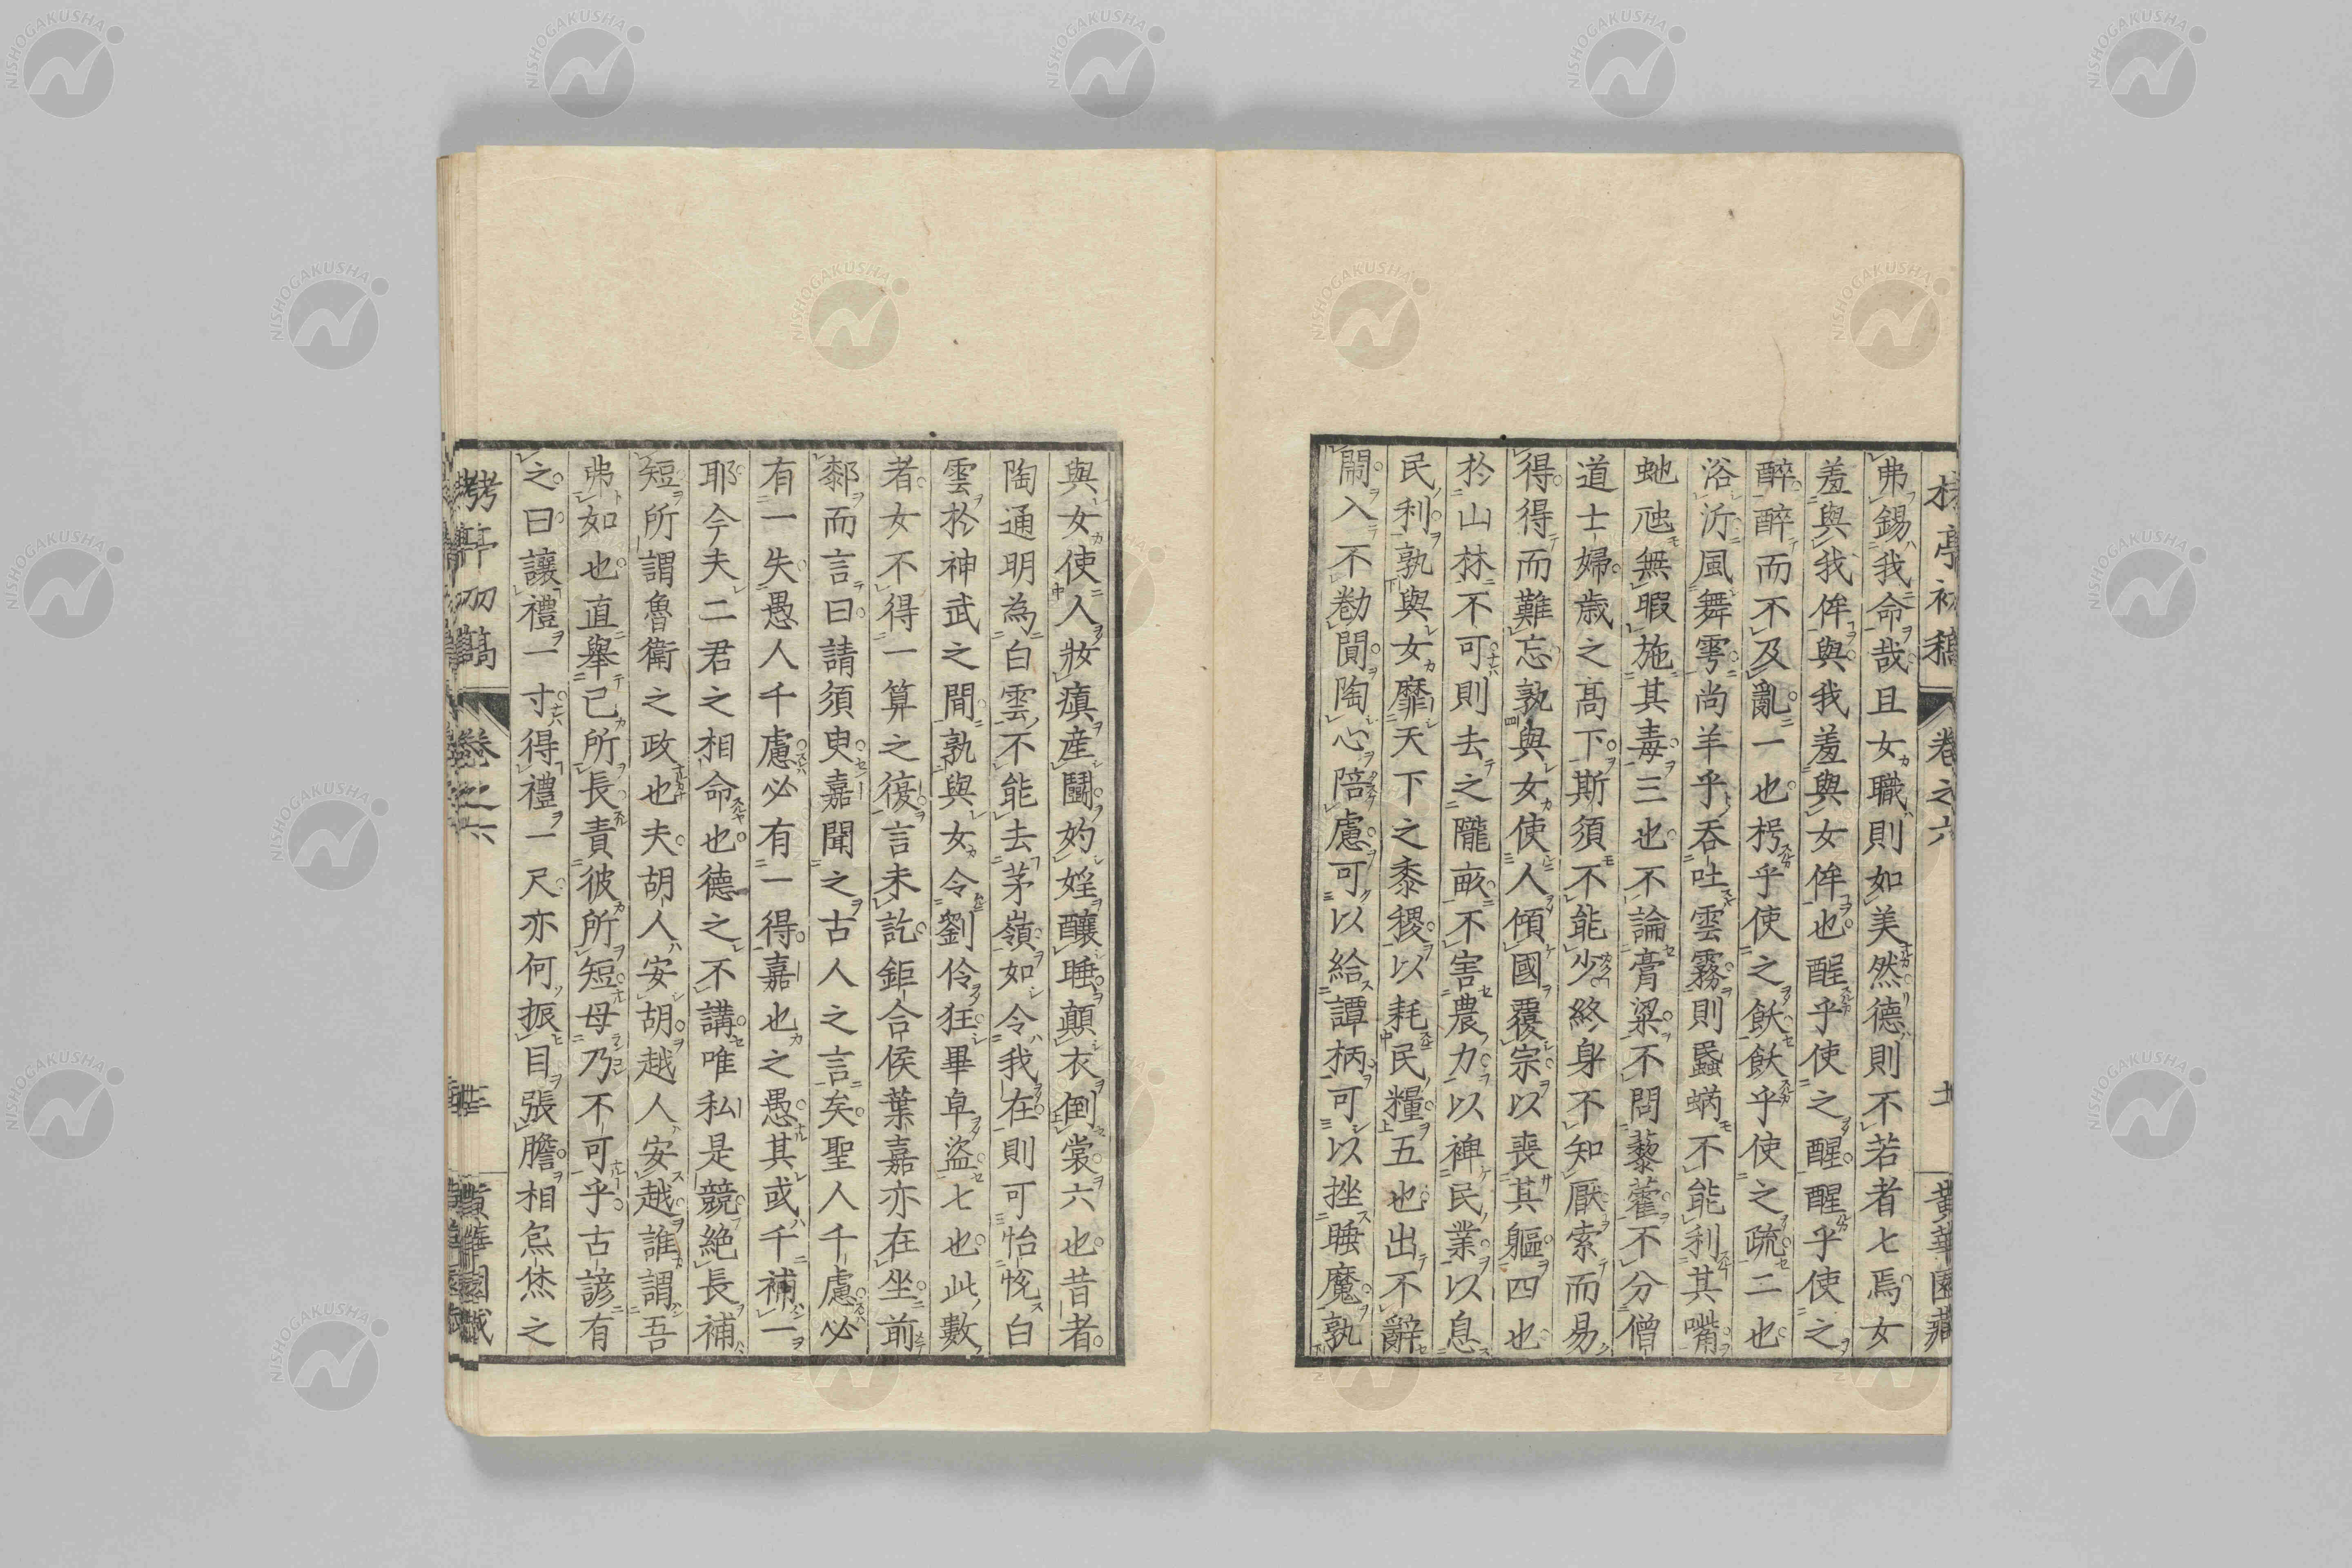 弗錫我命哉且女職則如美然德則不若者七焉女
羞與我侔與我羞與女侔也醒乎使之醒醒乎使之
醉醉而不及亂一也枵乎使之飫飫乎使之疏二也
浴沂風舞雩尚羊乎吞吐雲霧則蟁蚋不能利其嘴
虵虺無暇施其毒三也不論膏粱不問藜藿不分僧
道士婦歳之高下斯須不能少終身不知厭索而易
得得而難忘孰與女使人傾國覆宗以喪其軀四也
於山林不可則去之隴畝不害農力以裨民業以息
民利孰與女靡天下之黍稷以耗民糧五也出不辭
鬧入不勌閴陶心陪慮可以給譚柄可以挫睡魔孰
與女使人妝瘨産鬭妁婬釀睡顛衣倒裳六也昔者
陶通明為白雲不能去茅嶺如令我在則可怡悅白
雲於神武之間孰與女令劉伶狂畢卓盜七也此數
者女不得一算之復言未訖鉅合侯葉嘉亦在坐前
鄰而言曰請須臾嘉聞之古人之言矣聖人千慮必
有一失愚人千慮必有一得嘉也之愚其或千補一
耶今夫二君之相命也德之不講唯私是競絶長補
短所謂魯衞之政也夫胡人安胡越人安越誰謂吾
弗如也直舉己所長責彼所短毋乃不可乎古諺有
之曰讓禮一寸得禮一尺亦何振目張膽相炰烋之
卷之六
黃華園藏